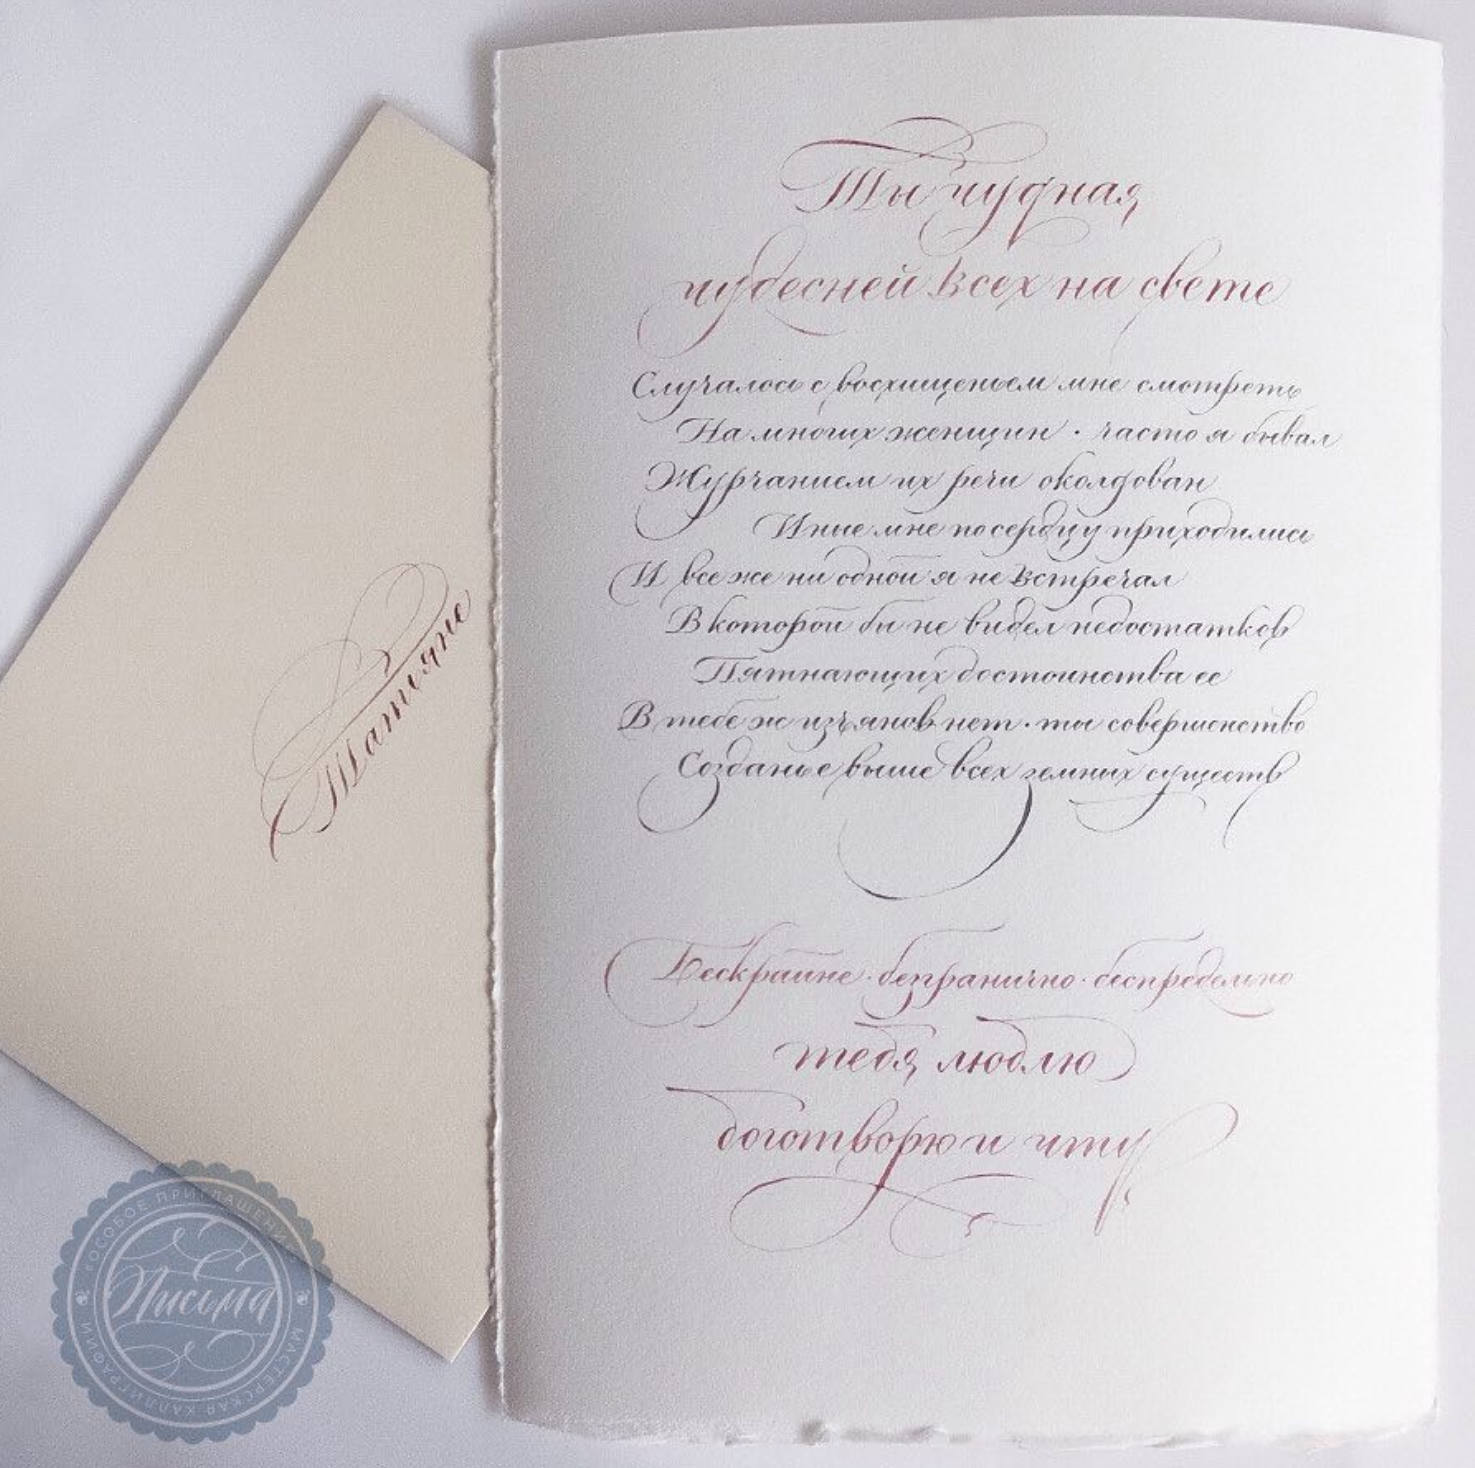 Ты чудная
чудесней всех на свете
Случалось с восхищеньем мне смотреть
На многих женщин · часто я бывал
Журчанием их речи околдован
Иные мне по сердцу приходились
И все же ни одной я не встречал
В которой бы не видел недостатков
Пятнающих достоинства ее
В тебе ж изъянов нет · ты совершенство
Созданье выше всех земных существ
Бескрайне · безгранично · беспредельно
тебя люблю
боготворю и чту
Татьяне
ОСОБОЕ ПРИГЛАШЕНИЕ
Письма
МАСТЕРСКАЯ КАЛЛИГРАФИИ